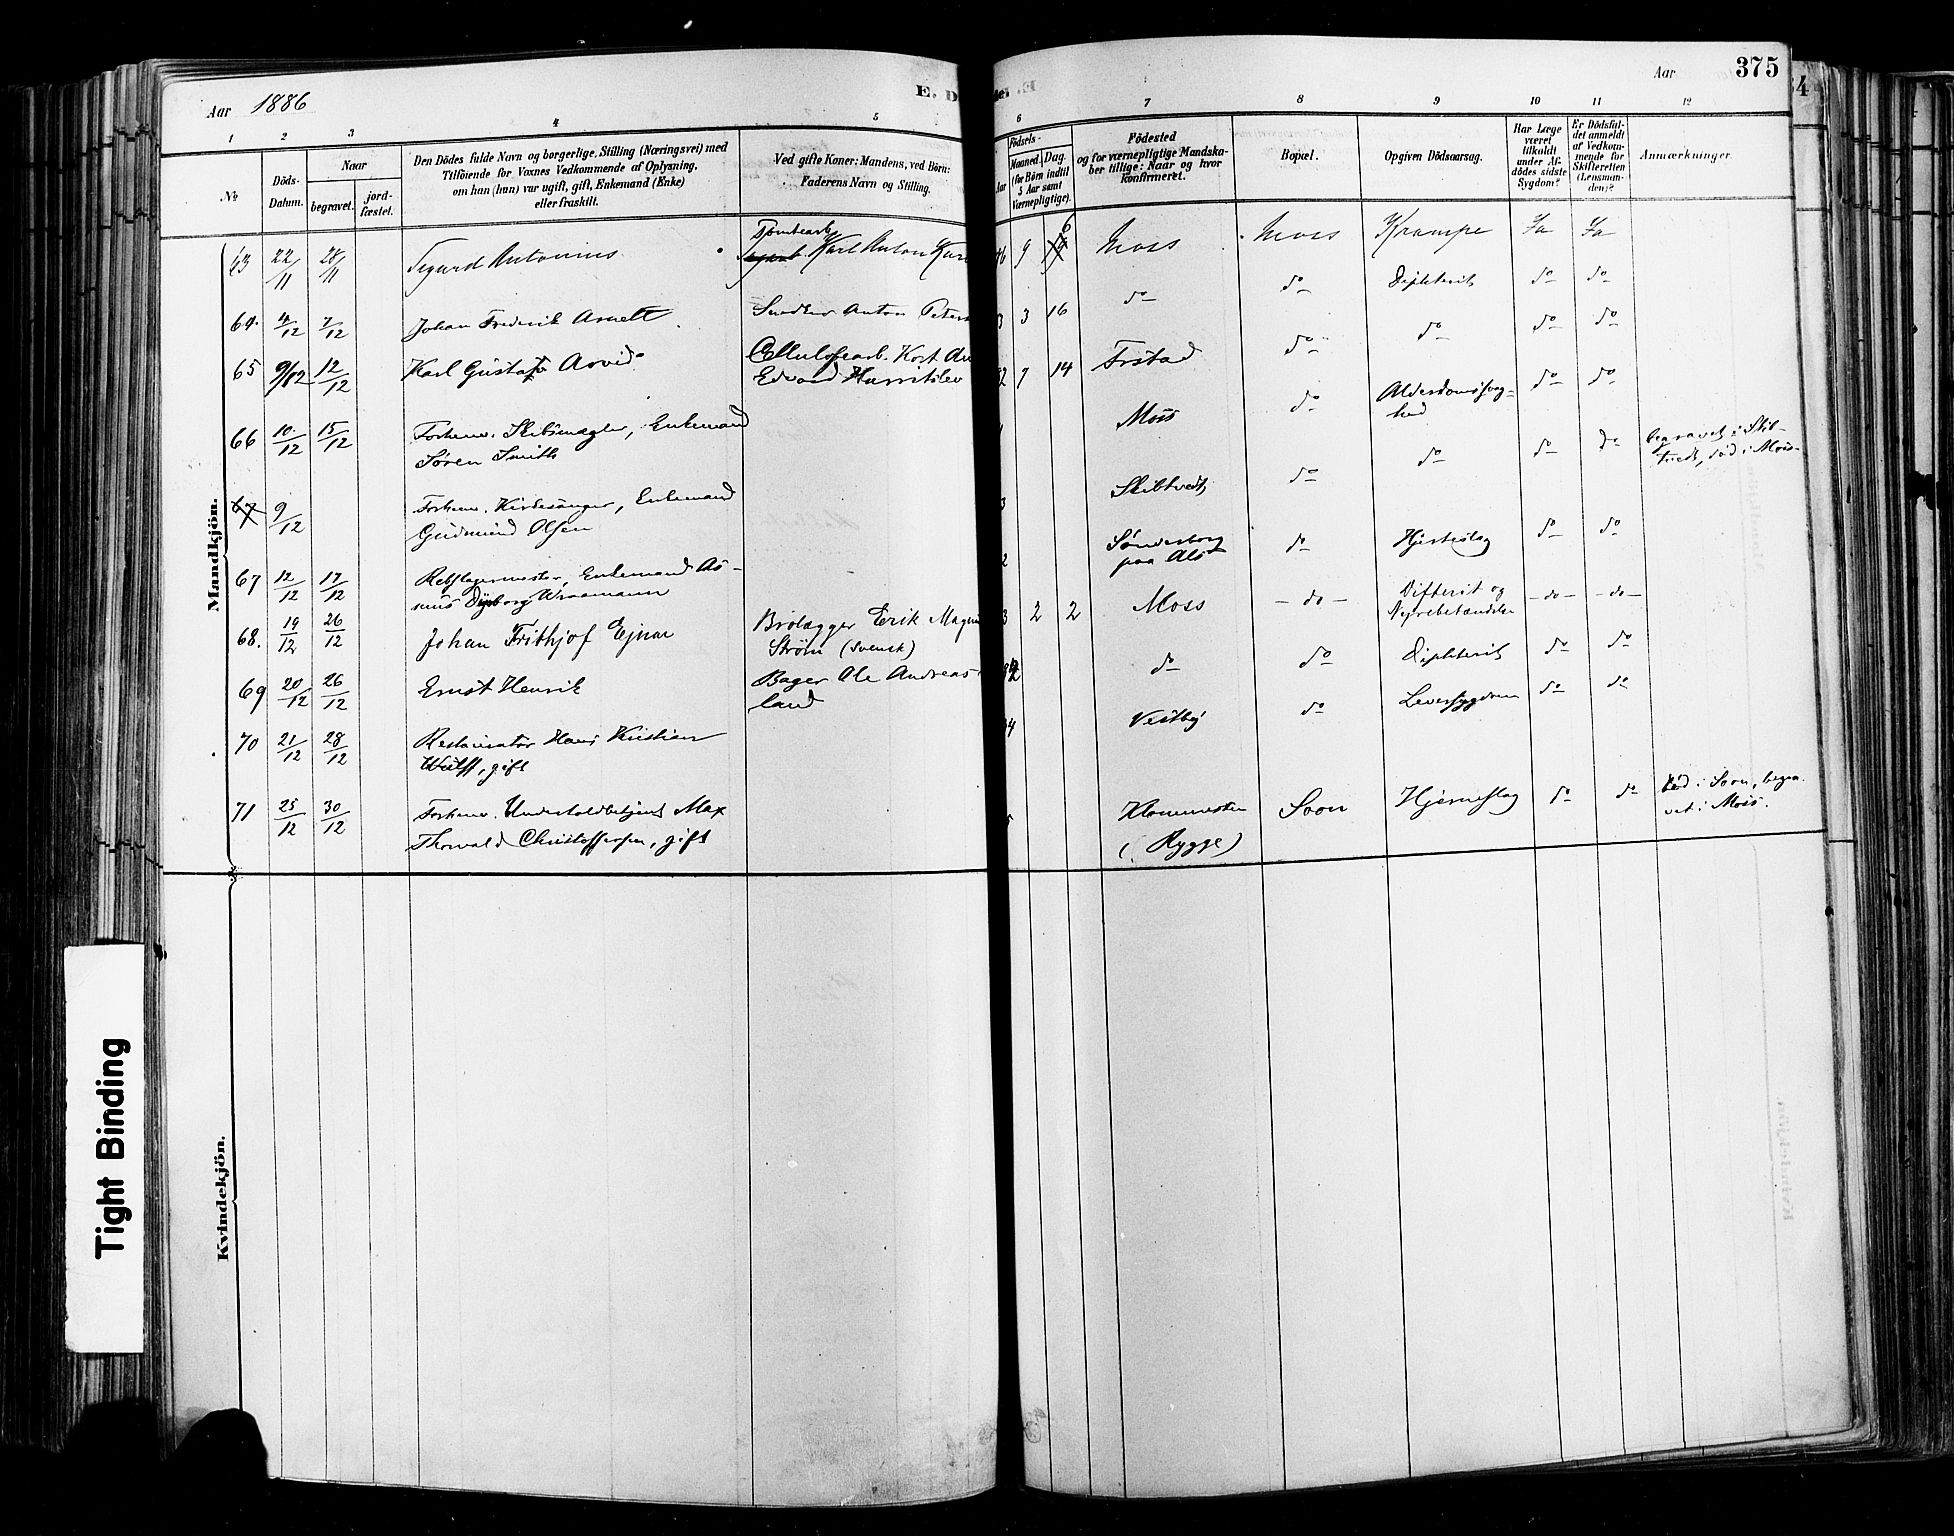 Aar 1886
E. D
Aar
375
1 2 3 4 5 6 7 8 9 10 11 12
№
Döds-
Datum.
Naar
begravet.
jord-
fæstet.
Den Dödes fulde Navn og borgerlige Stilling (Næringsvei) med
Tilföiende for Voxnes Vedkommende af Oplysning,
om han (hun) var ugift, gift, Enkemand (Enke)
eller fraskilt.
Ved gifte Koner: Mandens, ved Börn:
Faderens Navn og Stilling.
Födsels-
Aar
Maaned.
Dag.
(for Börn indtil
5 Aar samt
Værnepligtige).
Födested
og for værnepligtige Mandska-
ber tillige: Naar og hvor
konfirmeret.
Bopæl.
Opgiven Dödsaarsag.
Har Læge
været
tilkaldt
under Af-
dödes sidste
Sygdom?
Er Dödsfal-
det anmeldt
af Vedkom-
mende for
Skifteretten
(Lensman-
den)?
Anmærkninger.
Mandkjön.
63 22/11 28/11 Sigurd Antonius Tomtearb. Karl Anton 9 6 Moss Moss Krampe Ja Ja
64. 4/12 7/12 Johan Frederik Arnelt Snedker Anton Peters 3 3 16 do do Diphterit do do
65 9/12 12/12 Karl Gustaf Arvid Cellulosearb.
Edvard 7 14 Frstad do do do do
66 10/12 15/12 Forhenv. Skibsmægler, Enkemand
Søren Smith Moss do Alderdomssvag-
hed do do
67 9/12 Forhenv. Kirkesanger, Enkemand
Gudmund Olsen Skibtvedt do do do do begravet i Skib-
tvedt, död i Moss.
67 12/12 17/12 Rebslagermester, Enkemand As-
mus Dyborg Wraamann Sønderborg
paa Als do Hjerteslag do do
68. 19/12 26/12 Johan Frithjof Ejnar Brolægger Erik Magnu
Ström (svensk) 3 2 2 Moss - do - Difterit og
Nyrebetændelse - do - - do -
69 20/12 26/12 Ernst Henrik Bager Ole Andreas
land do do Diphterit do do
70 21/12 28/12 Restauratør Hans Kristian
Wulff, gift Vestby do Leversygdom do do
71 25/12 30/12 Forhenv. Underholdbetjent Max
Thorvald Christoffersen, gift
(Rygge) Soon Hjerneslag do do Död i Soon, begra-
vet i Moss.
Kvindekjön.
Tight Binding